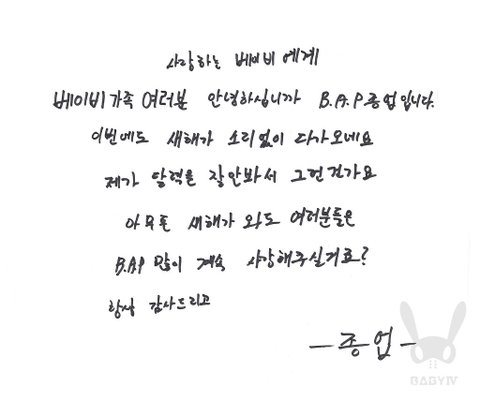 사랑하는 베이비 에게
베이비가족 여러분 안녕하십니까 B.A.P종업입니다.
이번에도 새해가 소리없이 다가오네요
제가 달력을 잘안봐서 그런건가요
아무튼 새해가 와도 여러분들은
B.A.P 많이 계속 사랑해주실거죠?
항상 감사드리고
-종업-
BABYIV